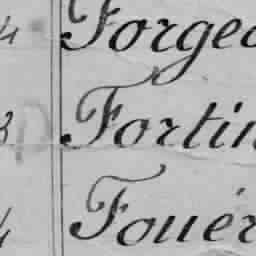 4 Forgeo
3 Fortin
4 Fouér